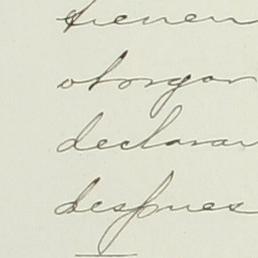 tienen
otorgan
declaran
despues